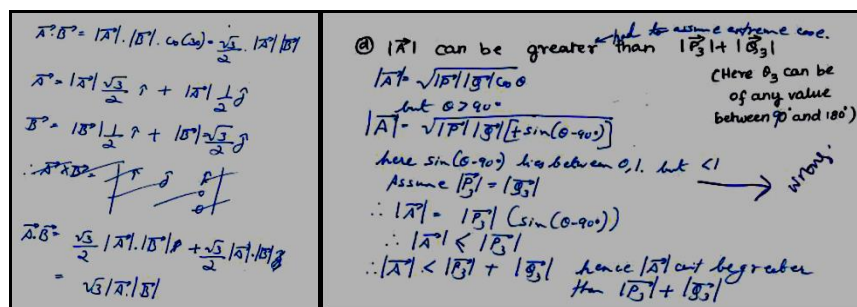 A⃗.B⃗ = |A⃗|.|B⃗|.cos(30) = √3/2 . |A⃗||B⃗|
A⃗ = |A⃗| √3/2 î + |A⃗| 1/2 ĵ
B⃗ = |B⃗| 1/2 î + |B⃗| √3/2 ĵ
∴ A⃗×B⃗ =
A⃗.B⃗ = √3/2 |A⃗|.|B⃗| + √3/2 |A⃗|.|B⃗|
= √3|A⃗.|B⃗|
to assume extreme case.
ⓓ |A⃗| can be greater than |P₃⃗| + |Q₃⃗|
(Here θ₃ can be
of any value
between 90° and 180°)
|A⃗| = √|P⃗||Q⃗|cosθ
but θ>90°
|A⃗| = √|P⃗||Q⃗|[+sin(θ-90°)]
here sin(θ-90°) lies between 0,1. but <1
wrong.
Assume |P₃⃗| = |Q₃⃗|
∴ |A⃗| = |P₃⃗| (sin(θ-90°))
∴ |A⃗| < |P₃⃗|
∴ |A⃗| < |P₃⃗| + |Q₃⃗| hence |A⃗| can't be greater
than |P₃⃗| + |Q₃⃗|